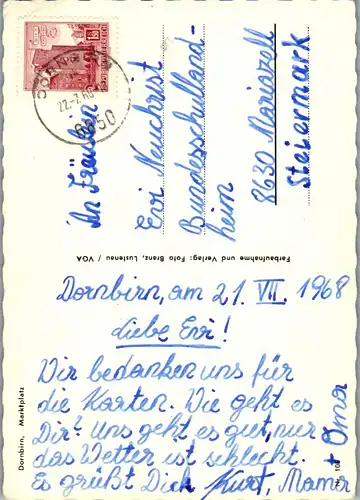 Dornbirn, am 21. VII. 1968
Liebe Evi!
Wir bedanken uns für
die Karten. Wie geht es
Dir? Uns geht es gut, nur
das Wetter ist schlecht.
Es grüßt Dich Kurt, Mama
+ Oma
An Fräulein
Evi Neuchrist
Bundesschulland-
heim
8630 Mariazell
Steiermark
Farbaufnahme und Verlag: Foto Branz, Lustenau / VGA
Dornbirn, Marktplatz
6850